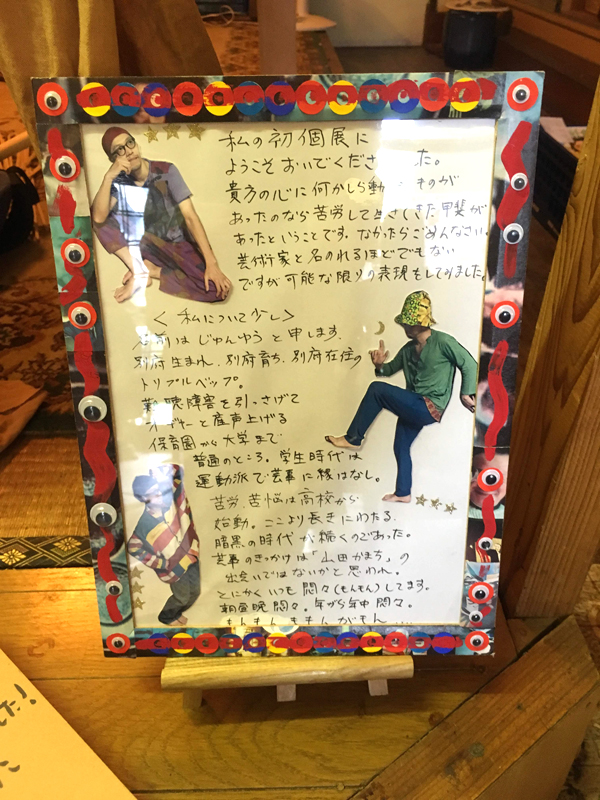 私の初個展に
ようこそおいでくださ た。
貴方の心に何かしら動 ものが
あったのなら苦労して生きてきた甲斐が
あったということです。なかったらごめんなさい。
芸術家と名のれるほどでもない
ですが可能な限りの表現をしてみました。
＜私について少し＞
名前はじゅんゆうと申します。
別府生まれ、別府育ち、別府在住の
トリプルベップ。
難聴障害を引っさげて
オギャーと産声上げる
保育園から大学まで
普通のところ。学生時代は
運動派で芸事に縁はなし。
苦労、苦悩は高校から
始動。ここより長きにわたる
暗黒の時代が続くのであった。
芸事のきっかけは「山田かまち」の
出会いではないかと思われ。
とにかくいつも悶々(もんもん)してます。
朝昼晩悶々。年がら年中悶々。
もんもんももんがもん....
た!
た